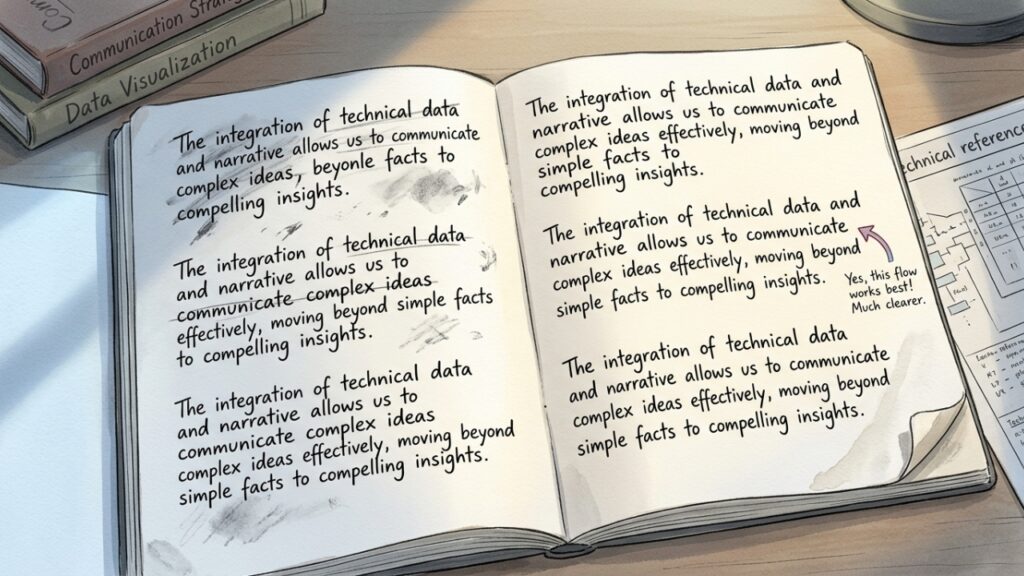 Com
Communication Strat
Data Visualization
The integration of technical data
and narrative allows us to communicate
complex ideas, beyonle facts to
compelling insights.
The integration of technical data
and narrative allows us to
communicate complex ideas
effectively, moving beyond simple facts
to compelling insights.
The integration of technical data
and narrative allows us to
communicate complex ideas
complex ideas effectively, moving beyond
simple facts to compelling insights.
The integration of technical data and
narrative allows us to communicate
complex ideas effectively, moving beyond
simple facts to
compelling insights.
The integration of technical data and
narrative allows us to communicate
complex ideas effectively, moving beyond
simple facts to compelling insights.
Yes, this flow
works best!
Much clearer.
The integration of technical data
and narrative allows us to communicate
complex ideas effectively, moving beyond
simple facts to compelling insights.
chnical referenc